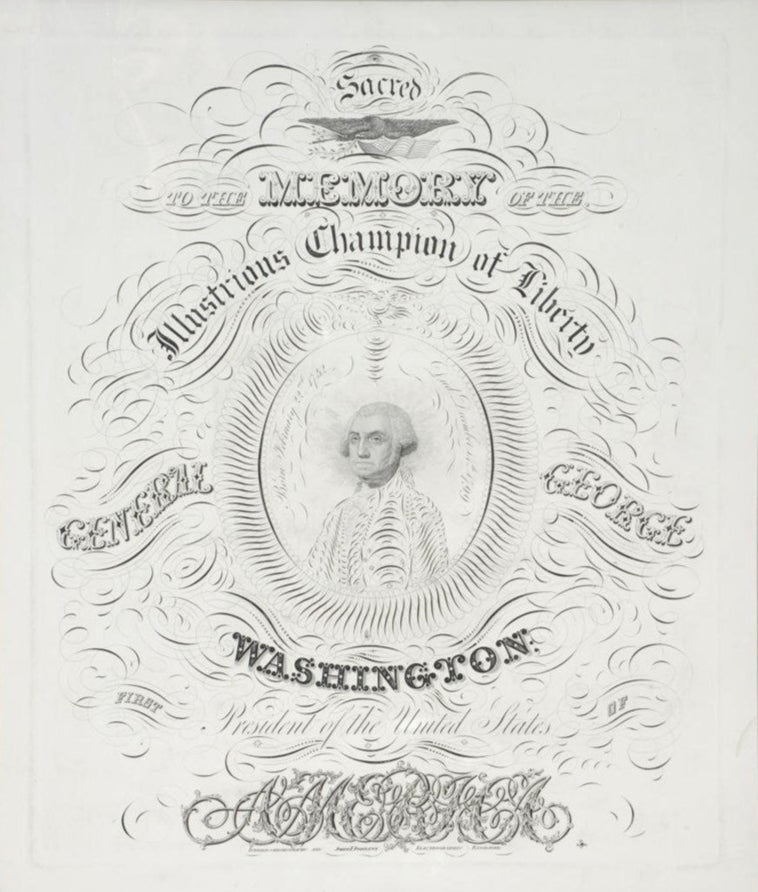 Sacred
TO THE MEMORY OF THE
Illustrious Champion of Liberty
Born February 22nd 1732
GENERAL GEORGE
WASHINGTON:
FIRST President of the United States OF
AMERICA